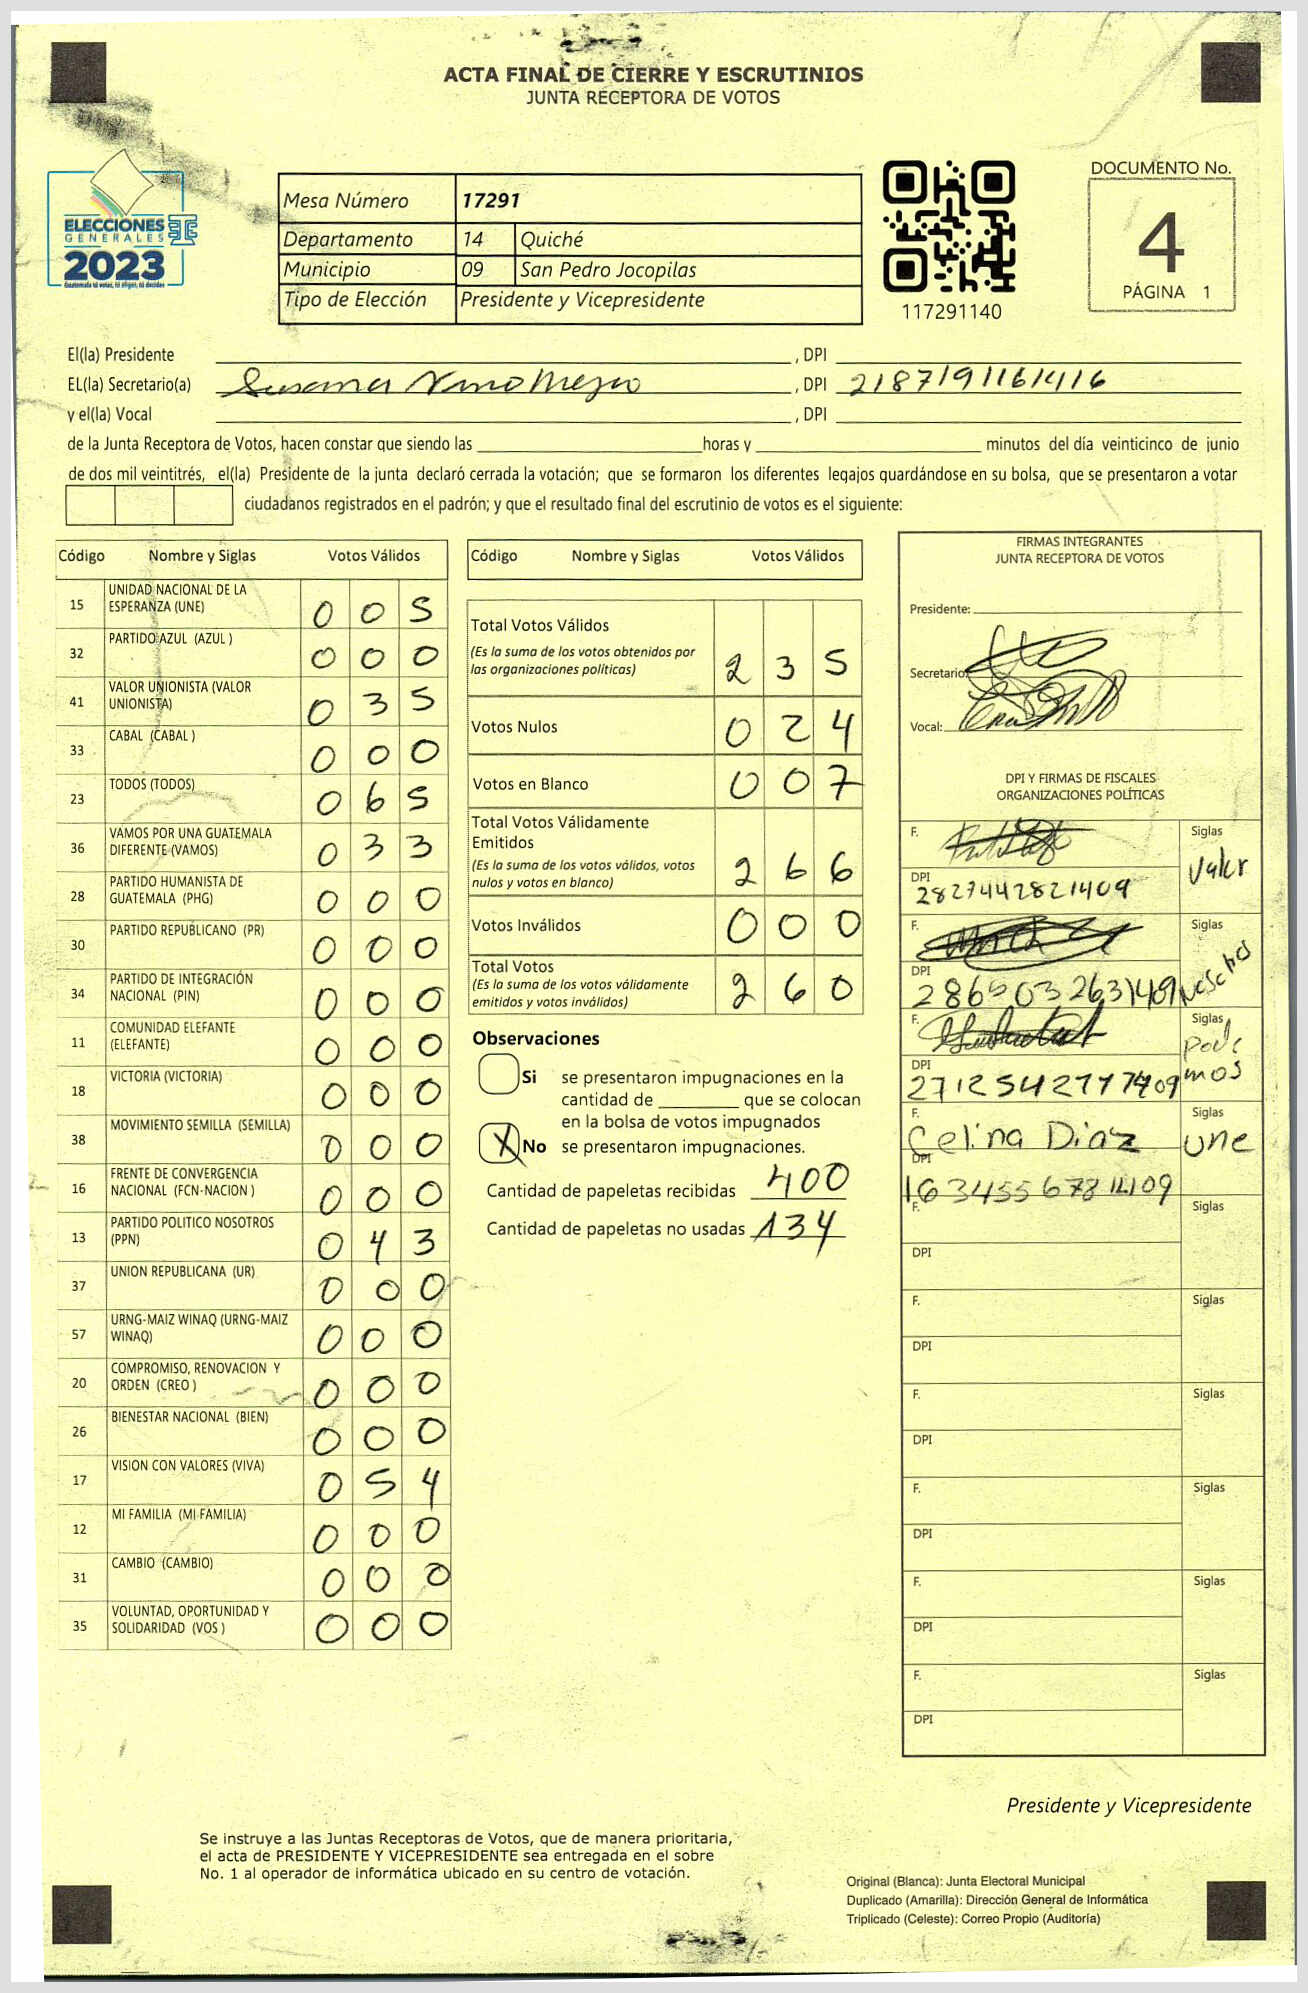 ACTA FINAL DE CIERRE Y ESCRUTINIOS
JUNTA RECEPTORA DE VOTOS
ELECCIONES
GENERALES
2023
Guatemala tú votas, tú eliges, tú decides
Mesa Número 17291
Departamento 14 Quiché
Municipio 09 San Pedro Jocopilas
Tipo de Elección Presidente y Vicepresidente
117291140
DOCUMENTO No.
4
PÁGINA 1
El(la) Presidente , DPI
EL(la) Secretario(a) Susana , DPI 2187191161416
y el(la) Vocal , DPI
de la Junta Receptora de Votos, hacen constar que siendo las horas y minutos del día veinticinco de junio
de dos mil veintitrés, el(la) Presidente de la junta declaró cerrada la votación; que se formaron los diferentes legajos quardándose en su bolsa, que se presentaron a votar
ciudadanos registrados en el padrón; y que el resultado final del escrutinio de votos es el siguiente:
Código Nombre y Siglas Votos Válidos
15 UNIDAD NACIONAL DE LA
ESPERANZA (UNE) 0 0 5
32 PARTIDO AZUL (AZUL ) 0 0 0
41 VALOR UNIONISTA (VALOR
UNIONISTA) 0 3 5
33 CABAL (CABAL ) 0 0 0
23 TODOS (TODOS) 0 6 5
36 VAMOS POR UNA GUATEMALA
DIFERENTE (VAMOS) 0 3 3
28 PARTIDO HUMANISTA DE
GUATEMALA (PHG) 0 0 0
30 PARTIDO REPUBLICANO (PR) 0 0 0
34 PARTIDO DE INTEGRACIÓN
NACIONAL (PIN) 0 0 0
11 COMUNIDAD ELEFANTE
(ELEFANTE) 0 0 0
18 VICTORIA (VICTORIA) 0 0 0
38 MOVIMIENTO SEMILLA (SEMILLA) 0 0 0
16 FRENTE DE CONVERGENCIA
NACIONAL (FCN-NACION ) 0 0 0
13 PARTIDO POLITICO NOSOTROS
(PPN) 0 4 3
37 UNION REPUBLICANA (UR) 0 0 0
57 URNG-MAIZ WINAQ (URNG-MAIZ
WINAQ) 0 0 0
20 COMPROMISO, RENOVACION Y
ORDEN (CREO ) 0 0 0
26 BIENESTAR NACIONAL (BIEN) 0 0 0
17 VISION CON VALORES (VIVA) 0 5 4
12 MI FAMILIA (MI FAMILIA) 0 0 0
31 CAMBIO (CAMBIO) 0 0 0
35 VOLUNTAD, OPORTUNIDAD Y
SOLIDARIDAD (VOS ) 0 0 0
Código Nombre y Siglas Votos Válidos
Total Votos Válidos
(Es la suma de los votos obtenidos por
las organizaciones políticas) 2 3 5
Votos Nulos 0 2 4
Votos en Blanco 0 0 7
Total Votos Válidamente
Emitidos
(Es la suma de los votos válidos, votos
nulos y votos en blanco) 2 6 6
Votos Inválidos 0 0 0
Total Votos
(Es la suma de los votos válidamente
emitidos y votos inválidos) 2 6 0
Observaciones
Si se presentaron impugnaciones en la
cantidad de que se colocan
en la bolsa de votos impugnados
X No se presentaron impugnaciones.
Cantidad de papeletas recibidas 400
Cantidad de papeletas no usadas 134
FIRMAS INTEGRANTES
JUNTA RECEPTORA DE VOTOS
Presidente:
Secretario:
Vocal:
DPI Y FIRMAS DE FISCALES
ORGANIZACIONES POLÍTICAS
F. Siglas
Valor
DPI
2827442821409
F. Siglas
DPI
F. Siglas
Pode
mos
DPI
F. Siglas
Celina Diaz une
DPI
F. Siglas
DPI
F. Siglas
DPI
F. Siglas
DPI
F. Siglas
DPI
F. Siglas
DPI
F. Siglas
DPI
Presidente y Vicepresidente
Se instruye a las Juntas Receptoras de Votos, que de manera prioritaria,
el acta de PRESIDENTE Y VICEPRESIDENTE sea entregada en el sobre
No. 1 al operador de informática ubicado en su centro de votación.
Original (Blanca): Junta Electoral Municipal
Duplicado (Amarilla): Dirección General de Informática
Triplicado (Celeste): Correo Propio (Auditoría)